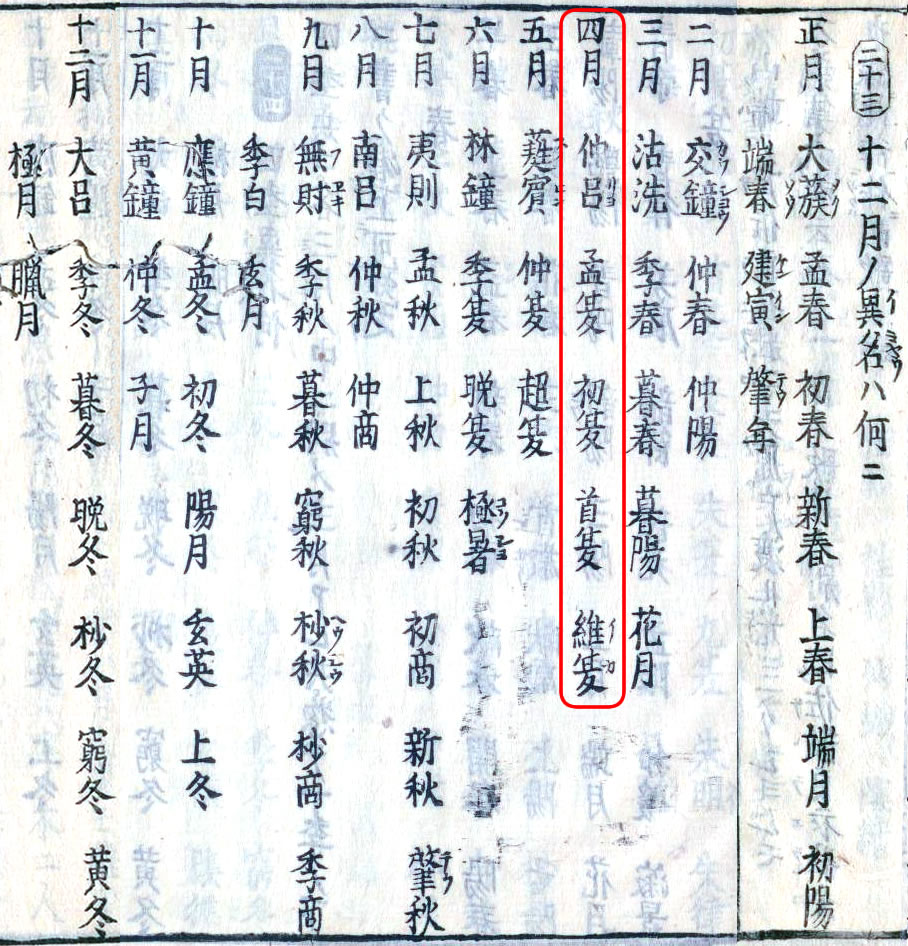 二十三 十二月ノ異名ハ何ニ
正月 大簇 孟春 初春 新春 上春 端月 初陽
端春 建寅 肇年
二月 交鐘 仲春 仲陽
三月 沽洗 季春 暮春 暮陽 花月
四月 仲呂 孟夏 初夏 首夏 維夏
五月 蕤賓 仲夏 超夏
六月 林鐘 季夏 晩夏 極暑
七月 夷則 孟秋 上秋 初秋 初商 新秋 肇秋
八月 南呂 仲秋 仲商
九月 無財 季秋 暮秋 窮秋 杪秋 杪商 季商
季白 玄月
十月 應鐘 孟冬 初冬 陽月 玄英 上冬
十一月 黄鐘 仲冬 子月
十二月 大呂 季冬 暮冬 晩冬 杪冬 窮冬 黄冬
極月 臘月